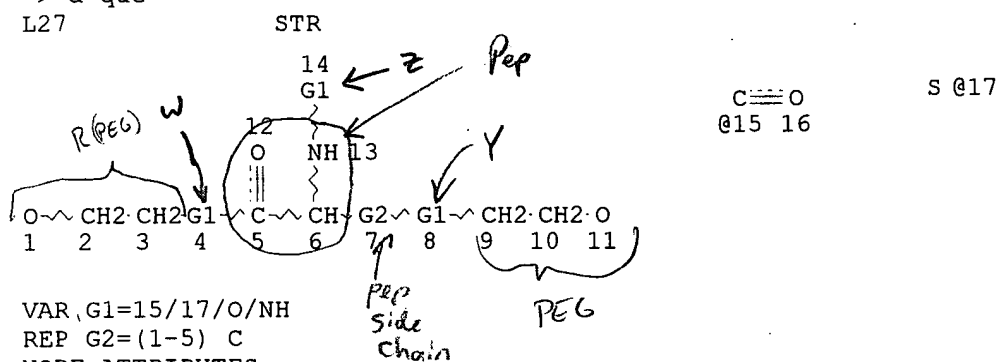 L27 STR
14
G1 ← Z Pep
C O S @17
@15 16
R(PEG) W 12
O NH 13 Y
O CH2 CH2 G1 C CH G2 G1 CH2 CH2 O
1 2 3 4 5 6 7 8 9 10 11
VAR G1=15/17/O/NH
REP G2=(1-5) C
pep
side
chain
PEG